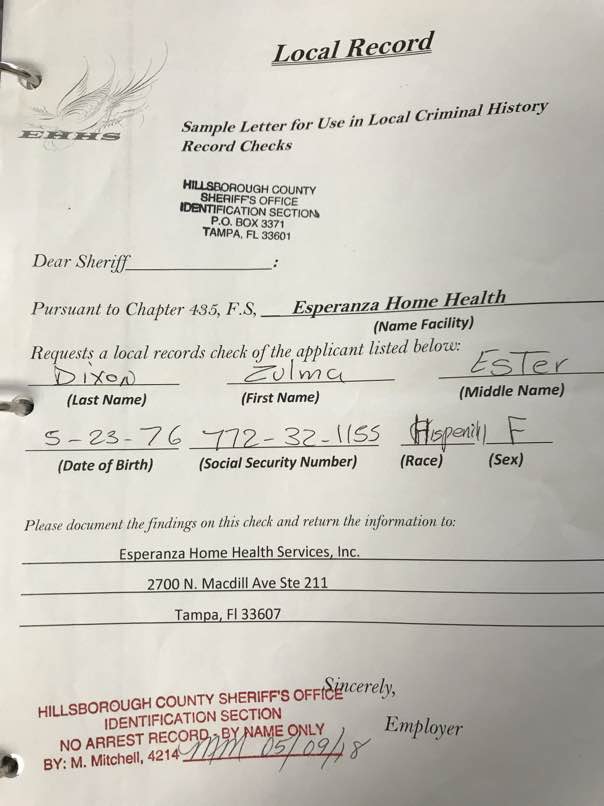 Local Record
EHHS
Sample Letter for Use in Local Criminal History
Record Checks
HILLSBOROUGH COUNTY
SHERIFF'S OFFICE
IDENTIFICATION SECTION
P.O. BOX 3371
TAMPA, FL 33601
Dear Sheriff :
Pursuant to Chapter 435, F.S, Esperanza Home Health
(Name Facility)
Requests a local records check of the applicant listed below:
Dixon Zulma Ester
(Last Name) (First Name) (Middle Name)
5-23-76 772-32-1155 F
(Date of Birth) (Social Security Number) (Race) (Sex)
Please document the findings on this check and return the information to:
Esperanza Home Health Services, Inc.
2700 N. Macdill Ave Ste 211
Tampa, Fl 33607
Sincerely,
Employer
HILLSBOROUGH COUNTY SHERIFF'S OFFICE
IDENTIFICATION SECTION
NO ARREST RECORD - BY NAME ONLY
BY: M. Mitchell, 4214 MM 05/09/18